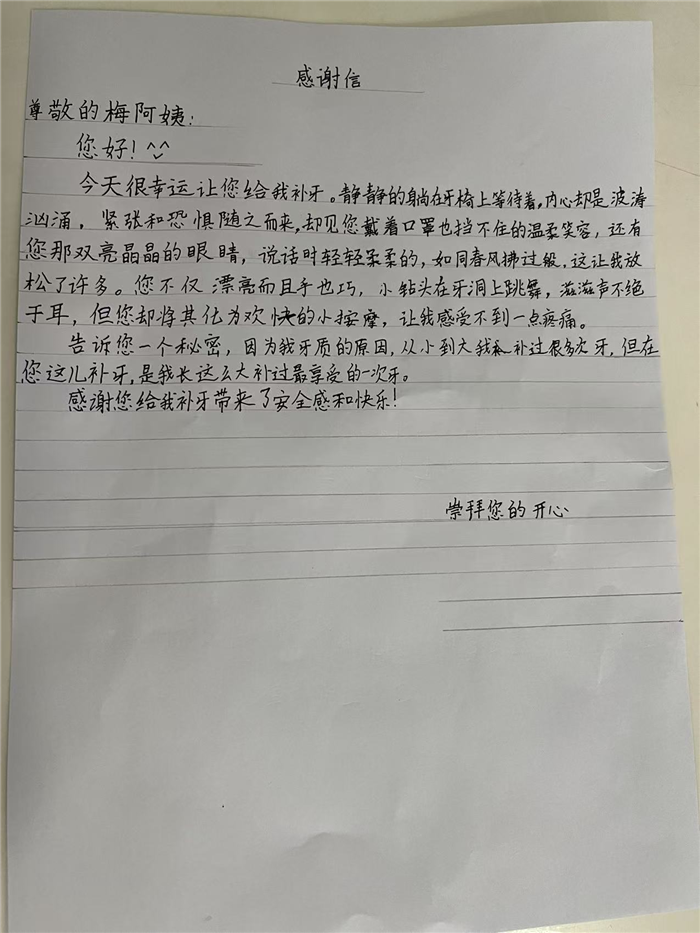 感谢信
尊敬的梅阿姨：
您好！^^
今天很幸运让您给我补牙。静静的躺在牙椅上等待着，内心却是波涛
汹涌，紧张和恐惧随之而来，却见您戴着口罩也挡不住的温柔笑容，还有
您那双亮晶晶的眼睛，说话时轻轻柔柔的，如同春风拂过般，这让我放
松了许多。您不仅漂亮而且手也巧，小钻头在牙洞上跳舞，滋滋声不绝
于耳，但您却将其化为欢快的小按摩，让我感受不到一点疼痛。
告诉您一个秘密，因为我牙质的原因，从小到大我补过很多次牙，但在
您这儿补牙，是我长这么大补过最享受的一次牙。
感谢您给我补牙带来了安全感和快乐！
崇拜您的开心